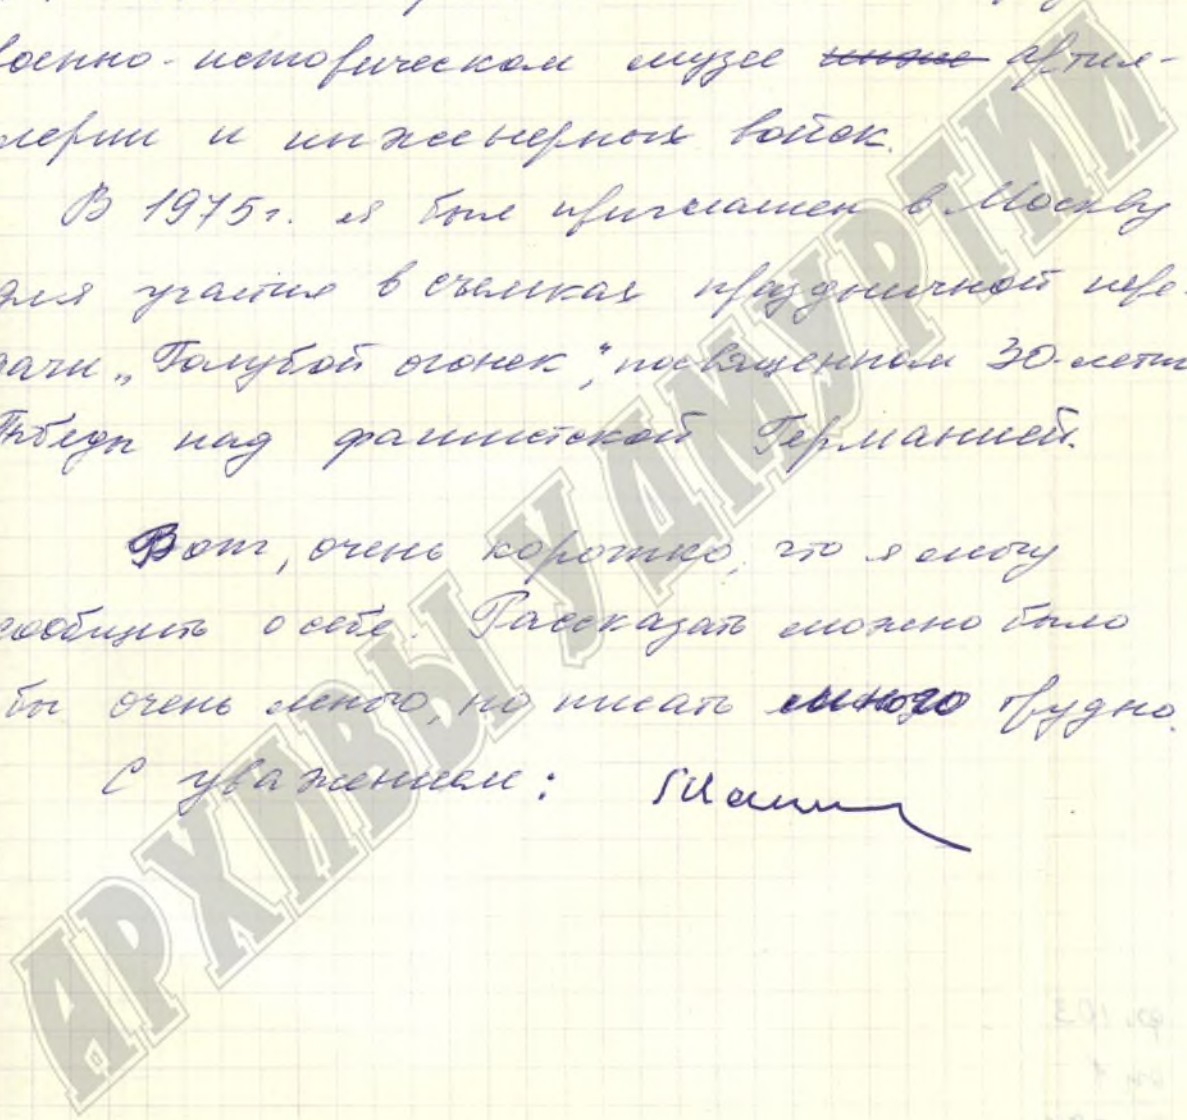 военно-историческом музее артил-
лерии и инженерных войск.
В 1975г. я был приглашен в Москву
для участия в съемках праздничной пере-
дачи „Голубой огонек", посвященном 30-лети
Победы над фашистской Германией.
Вот, очень коротко, что я могу
сообщить о себе. Рассказать можно было
бы очень много, но писать много трудно.
С уважением:
АРХИВЫ УДМУРТИИ